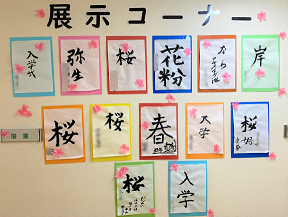 展示コーナー
入学式
弥生
桜
花粉
岸
桜
桜
春
大学
桜
桜
入学